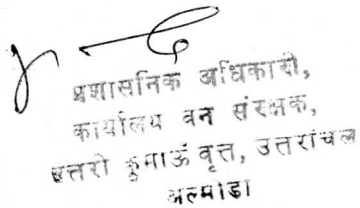 प्रशासनिक अधिकारी,
कार्यालय वन संरक्षक,
उत्तरी कुमाऊँ वृत्त, उत्तरांचल
अल्मोडा